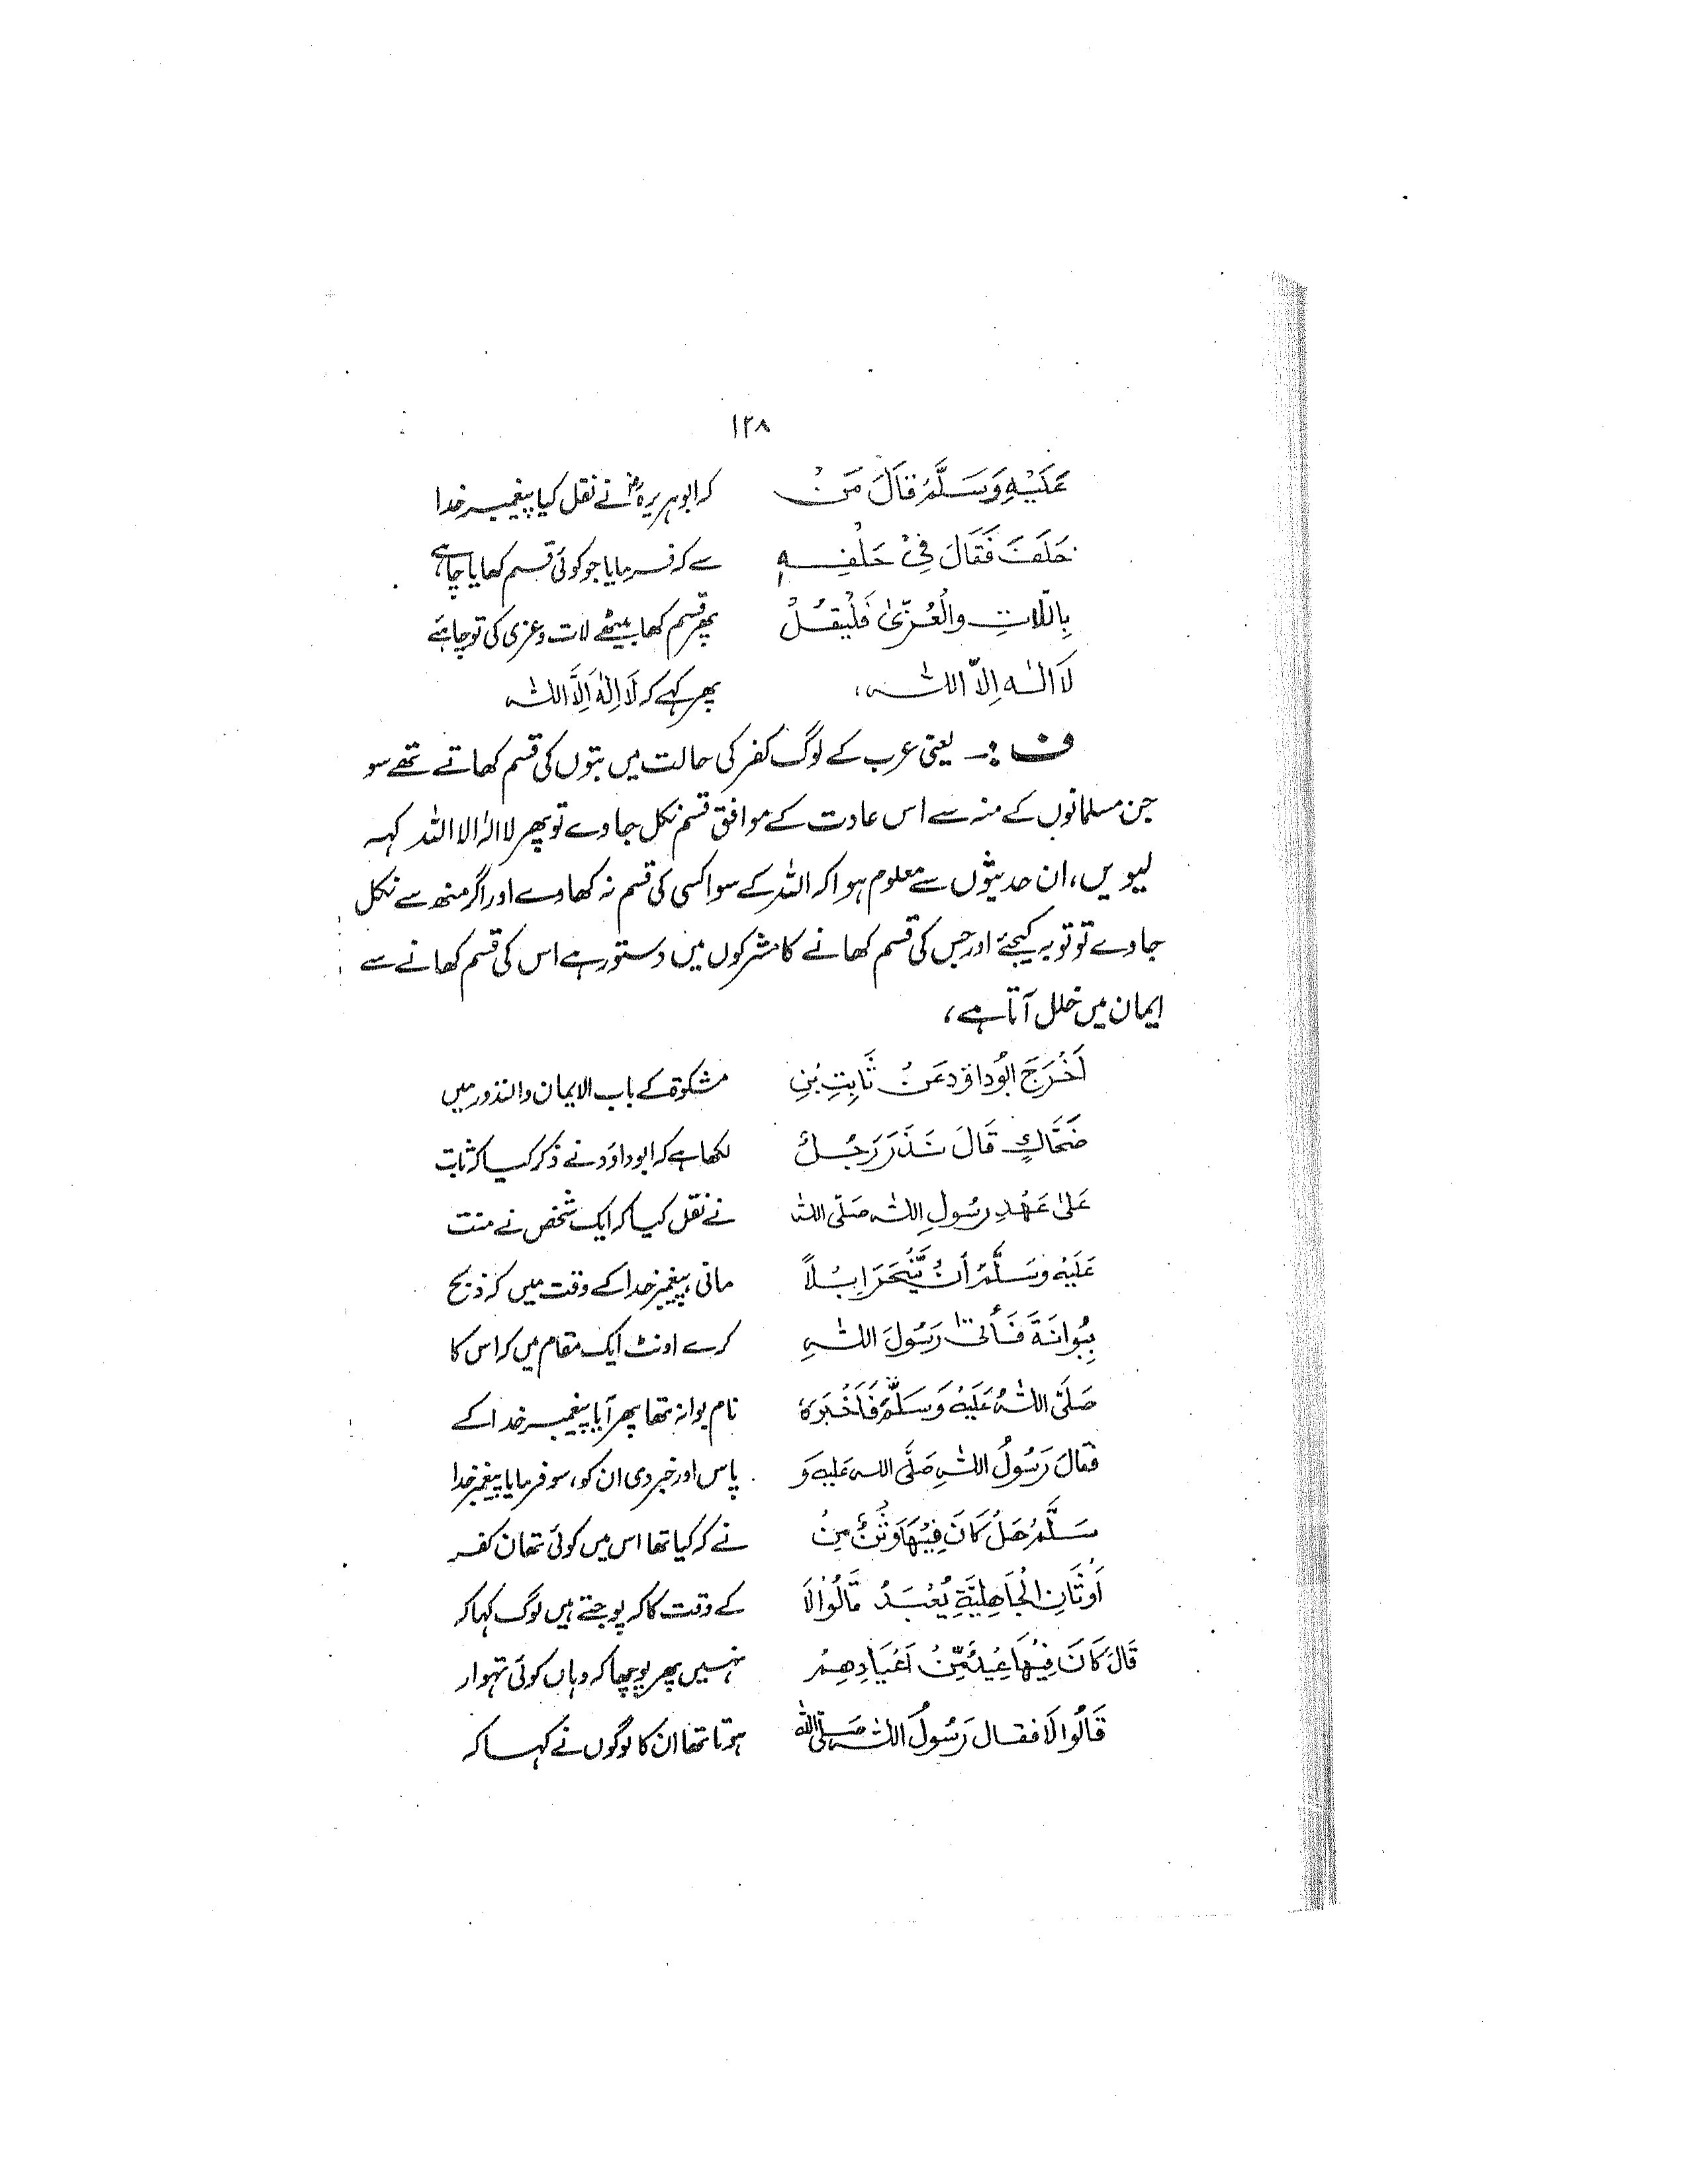 ۱۲۸
عَلَيْهِ وَسَلَّمَ قَالَ مَنْ
حَلَفَ فَقَالَ فِيْ حَلْفِهٖ
بِاللّاتِ وَالْعُزّىٰ فَلْيَقُلْ
لَا اِلٰهَ اِلاّ اللہ،
کہ ابوہریرہؓ نے نقل کیا پیغمبر خدا
سے کہ فرمایا جو کوئی قسم کھایا چاہے
پھر قسم کھا بیٹھے لات و عزی کی تو چاہئے
پھر کہے کہ لَا اِلٰهَ اِلَّا اللہ
ف :۔ یعنی عرب کے لوگ کفر کی حالت میں بتوں کی قسم کھاتے تھے سو
جن مسلمانوں کے منہ سے اس عادت کے موافق قسم نکل جاوے تو پھر لا الہ الا اللہ کہہ
لیویں، ان حدیثوں سے معلوم ہوا کہ اللہ کے سوا کسی کی قسم نہ کھاوے اور اگر منھ سے نکل
جاوے تو توبہ کیجئے اور جس کی قسم کھانے کا مشرکوں میں دستور ہے اس کی قسم کھانے سے
ایمان میں خلل آتا ہے،
اَخْرَجَ ابُوداؤد عَنْ ثَابِتِ بْنِ
ضَحَّاكٍ قَالَ نَذَرَ رَجُلٌ
عَلىٰ عَهْدِ رَسُولِ اللہ صَلّی اللہ
عَلَيْهِ وَسَلَّمَ أنْ يَّنْحَرَ اِبِلاً
بِبُوانَةَ فَأتىٰ رَسُولَ اللہِ
صَلَّى اللہُ عَلَيْهِ وَسَلَّمَ فَاَخْبَرَهٗ
فَقَالَ رَسُولُ اللہِ صَلَّى اللہ عَلیہِ وَ
سَلَّمَ هَلْ كَانَ فِيْهَا وَثَنٌ مِنْ
اَوْثَانِ الْجَاهِلِيَّةِ يُعْبَدُ قَالُوْا لَا
قَالَ كَانَ فِيْهَا عِيْدٌ مِّنْ اَعْيَادِهِمْ
قَالُوا لَا فقال رَسُولُ اللہ صَلّی اللہ
مشکوۃ کے باب الایمان والنذور میں
لکھا ہے کہ ابوداؤد نے ذکر کیا کہ ثابت
نے نقل کیا کہ ایک شخص نے منت
مانی پیغمبر خدا کے وقت میں کہ ذبح
کرے اونٹ ایک مقام میں کہ اس کا
نام بوانہ تھا پھر آیا پیغمبر خدا کے
پاس اور خبر دی ان کو، سو فرمایا پیغمبر خدا
نے کہ کیا تھا اس میں کوئی تھان کفر
کے وقت کا کہ پوجتے ہیں لوگ کہا کہ
نہیں پھر پوچھا کہ وہاں کوئی تہوار
ہوتا تھا ان کا لوگوں نے کہا کہ